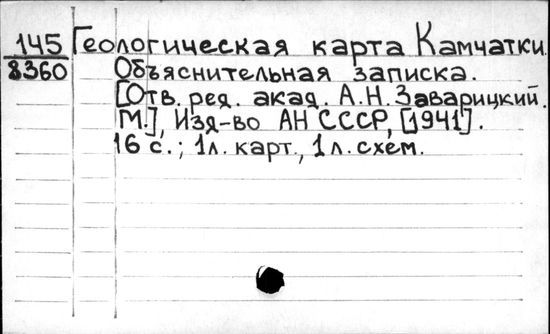 145 Геологическая карта Камчатки.
8360 Объяснительная записка.
[Отв. ред. акад. А.Н. Заварицкий.
М.], Изд-во АН СССР, [1941].
16 с.; 1л. карт., 1 л. схем.